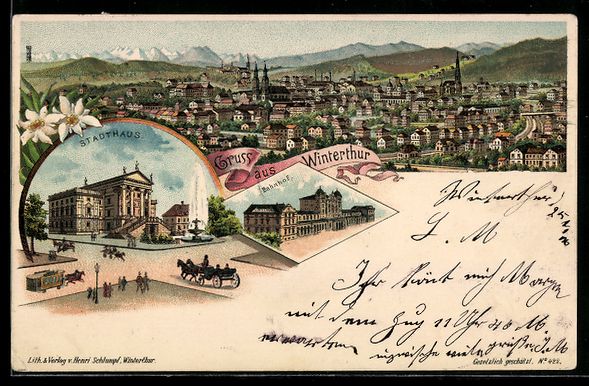 STADTHAUS.
Gruss
aus
Winterthur
Bahnhof.
Winterthur
L. M
Ihr könt mich Morgen
mit dem Zug 11 Uhr 40 M.
erwarten
inzwische viele grüße J. M
Lith. & Verlag v. Henri Schlumpf, Winterthur.
Gesetzlich geschützt. No 422.